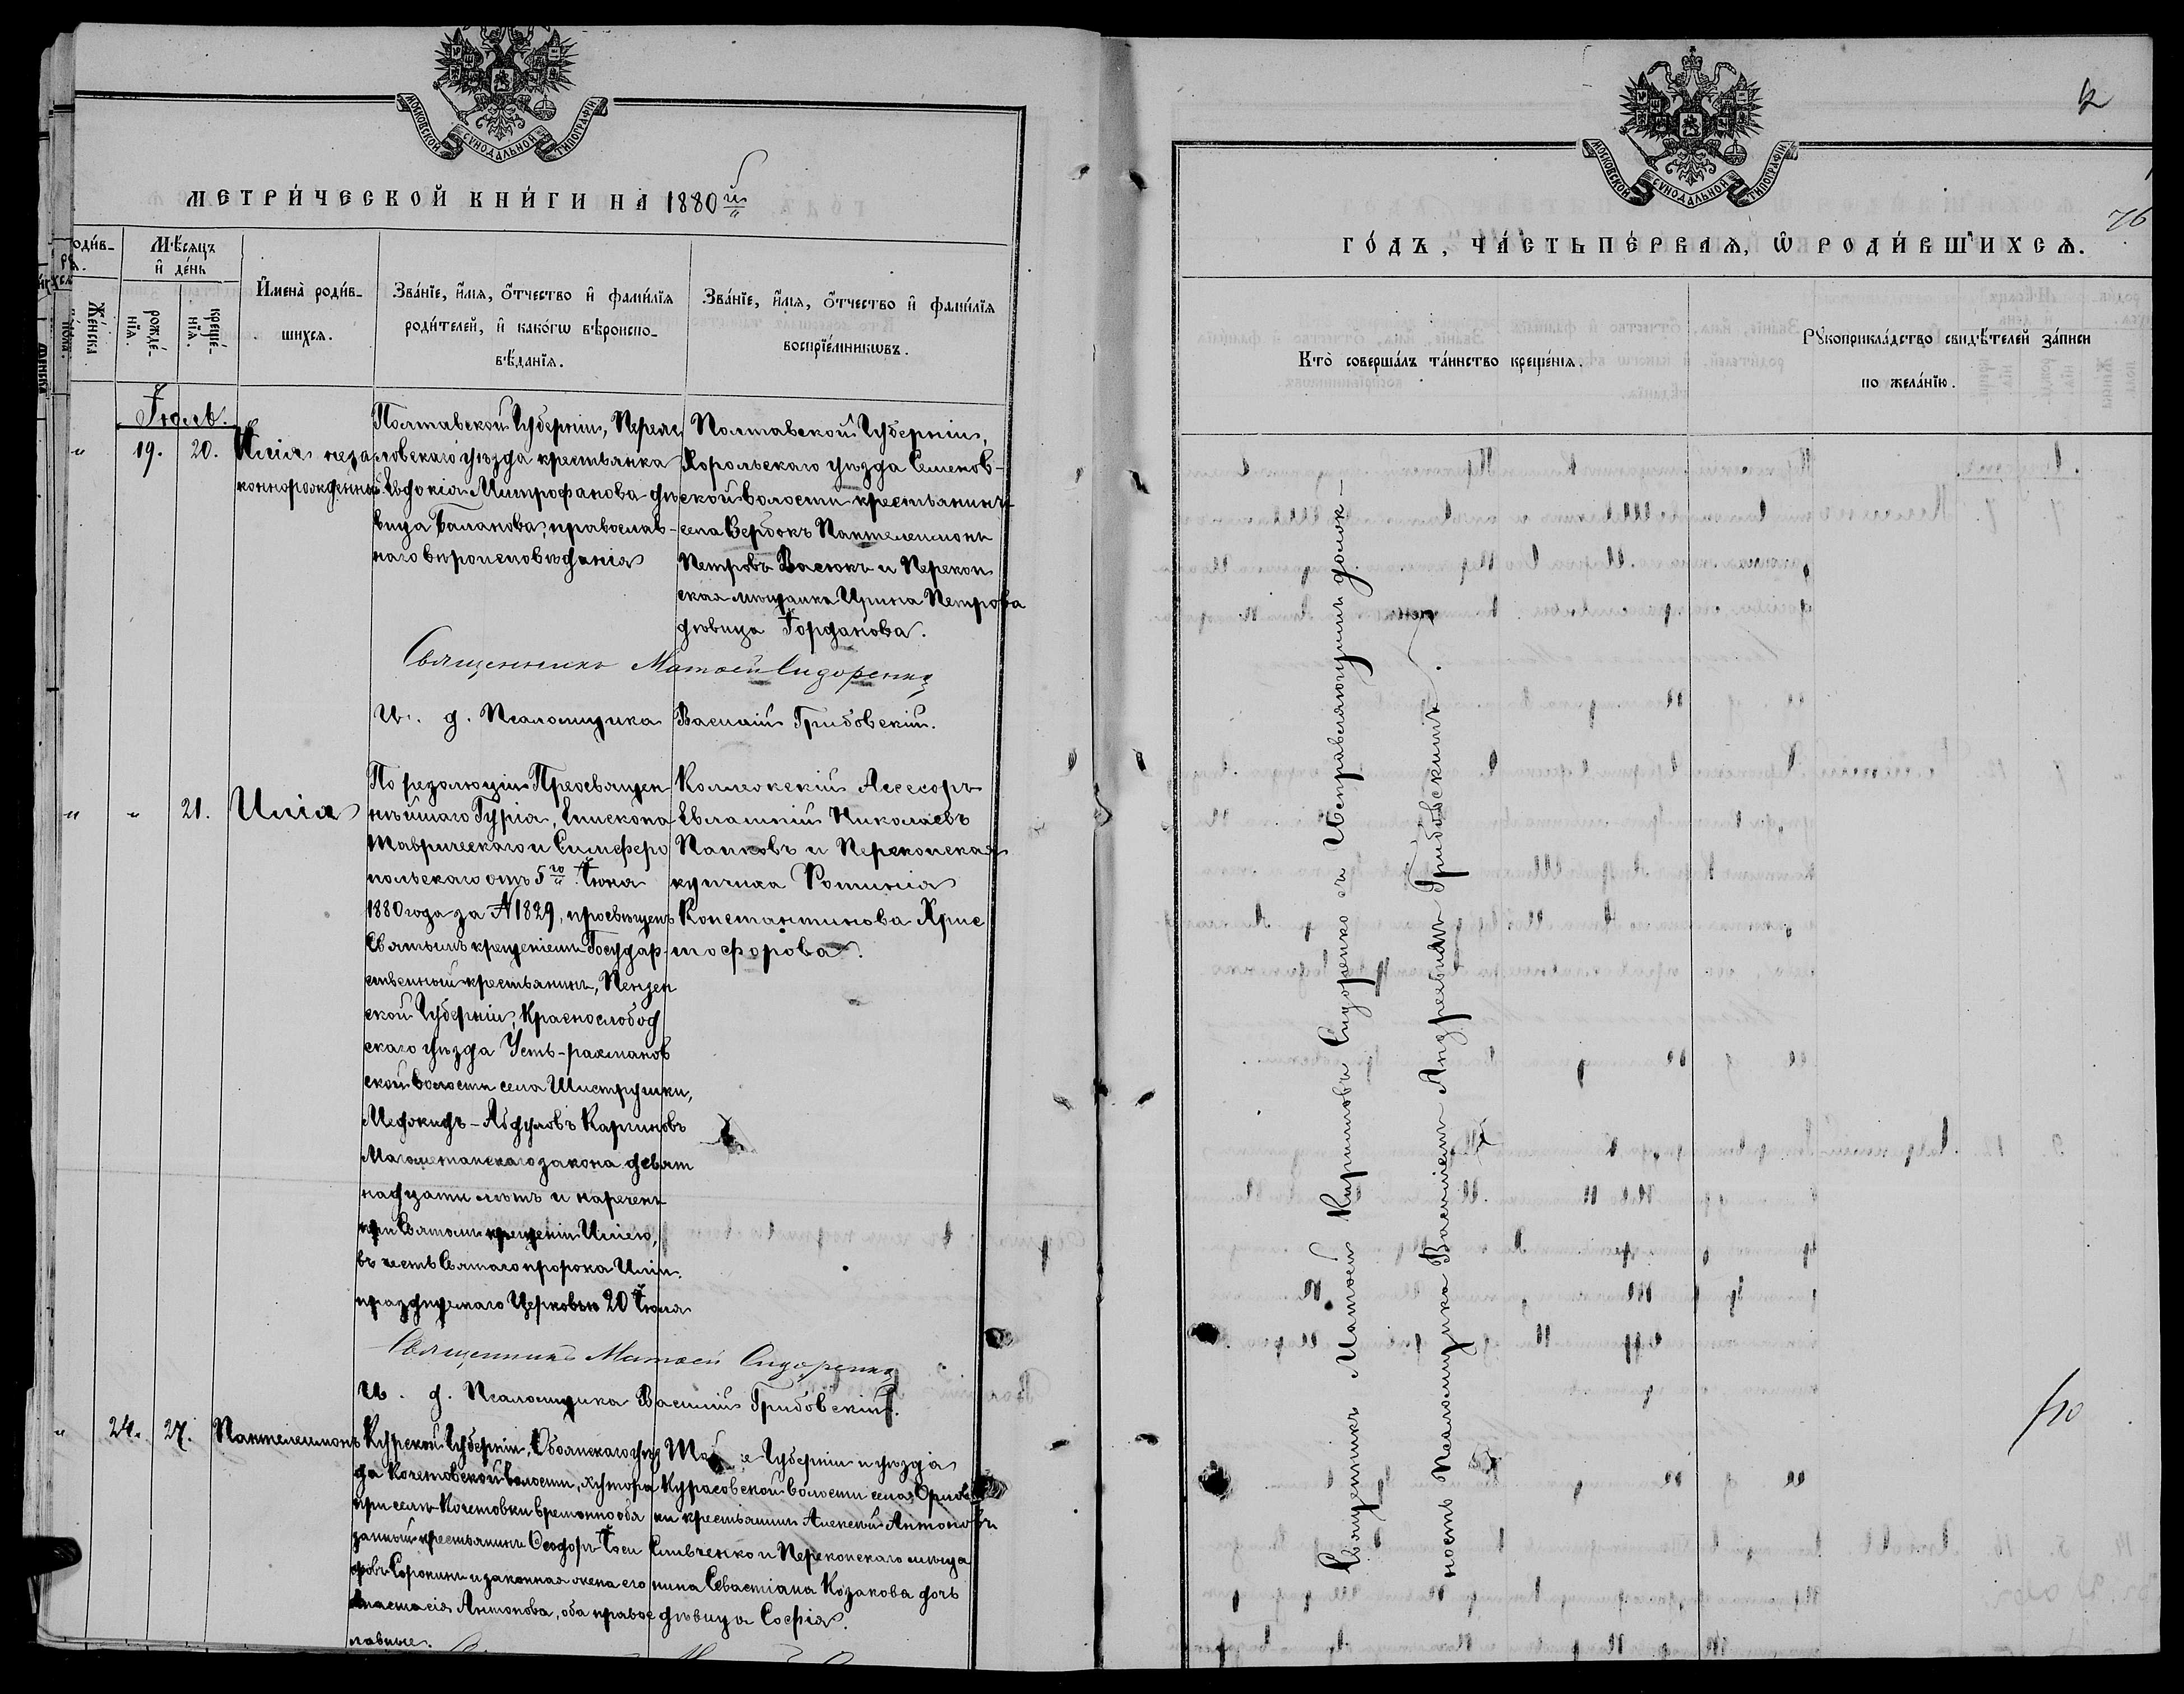 МОСКОВСКОЙ СѴНОДАЛЬНОЙ ТИПОГРАФІИ
МЕТРИ́ЧЕСКОЙ КНИ́ГИ НА 1880й
Мѣ́сяцъ
и҆ де́нь
Же́нска
рожде́-
нїѧ.
креще́-
нїѧ.
И҆мена̀ роди́в-
шихсѧ.
Зва́нїе, и҆́мѧ, ѻ҆́тчество и҆ фами́лїѧ
роди́телей, и҆ како́гѡ вѣроиспо-
вѣ́данїѧ.
Зва́нїе, и҆́мѧ, ѻ҆́тчество и҆ фами́лїѧ
воспрїе́мникѡвъ.
Іюль.
19. 20. Илія неза
коннорожденный
Полтавской Губерніи, Переяс
ловскаго уѣзда крестьянка
Евдокія Митрофанова дѣ
вица Баланова, православ-
наго вѣроисповѣданія
Полтавской Губерніи,
Хорольскаго уѣзда Семенов-
ской волости крестьянинъ
села Вербокъ Пантелеимонъ
Петровъ Васюкъ и Перекоп
ская мѣщанка Ирина Петрова
дѣвица Іорданова.
Священникъ Матѳей Сидоренко
И. д. Псаломщика Василій Грибовскій.
" " 21. Илія
По резолюціи Преосвящен
нѣйшаго Гурія, Епископа
Таврическаго и Симферо
польскаго отъ 5го Іюня
1880 года за №1829, просвѣщенъ
Святымъ крещеніемъ Государ-
ственный крестьянинъ, Пензен
ской Губерніи, Краснослобод
скаго уѣзда Усть-рахманов
ской волости села Шиструшки,
Медокидъ-Абдуловъ Каргиновъ
Магометанскаго закона девят
надцати лѣтъ и нареченъ
при Святомъ крещеніи Иліею,
въ честь Святаго пророка Иліи.
празднуемаго Церковью 20 Іюля
Коллежскій Ассесоръ
Евлампій Николаевъ
Папковъ и Перекопская
купчиха Фотинія
Константинова Хрис
тофорова.
Священникъ Матѳей Сидоренко
И. д. Псаломщика Василій Грибовскій.
" 24. 27. Пантелеимонъ
Курской Губерніи, Обоянскаго уѣз
да Кочетовской волости, хутора
при селѣ Кочетовки временнообя
занный крестьянинъ Ѳеодоръ Іоси
фовъ Сорокинъ и законная жена его
Анастасія Антонова, оба правос
лавные.
Губерніи и уѣзда
Курасовской волости села Орлов
ки крестьянинъ Алексѣй Антоновъ
Емъченко и Перекопскаго мѣща
нина Севастіана Козакова дочь
дѣвица Софія.
МОСКОВСКОЙ СѴНОДАЛЬНОЙ ТИПОГРАФІИ
76
ГО́ДЪ, ЧА́СТЬ ПЕ́РВАѦ, Ѡ РОДИ́ВШИХСѦ.
Кто̀ соверша́лъ та́инство креще́нїѧ.
Рꙋкоприкла́дство свидѣ́телей за́писи
по жела́нїю.
Священникъ Матѳей Кириловъ Сидоренко съ Исправляющимъ долж-
ность Псаломщика Василіемъ Андреевымъ Грибовскимъ.